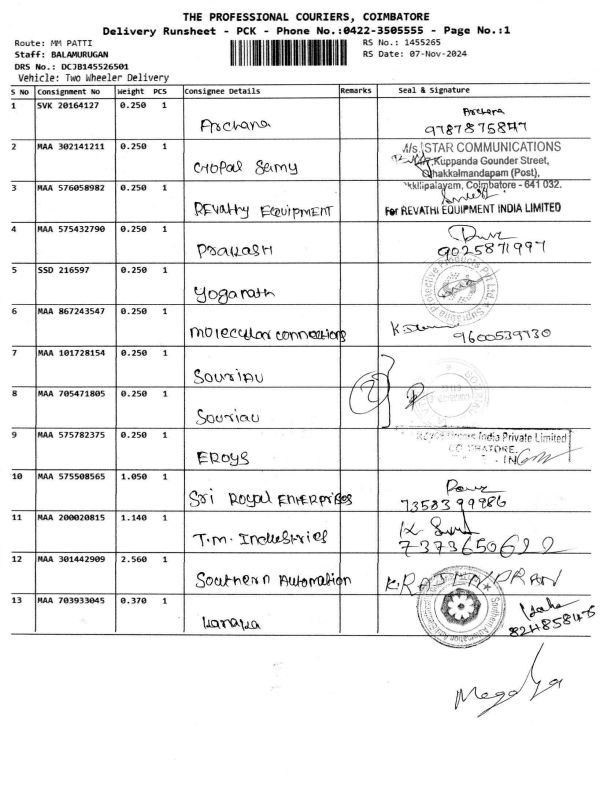 THE PROFESSIONAL COURIERS, COIMBATORE
Delivery Runsheet - PCK - Phone No.:0422-3505555 - Page No.:1
Route: MM PATTI
RS No.: 1455265
Staff: BALAMURUGAN
RS Date: 07-Nov-2024
DRS No.: DCJB145526501
Vehicle: Two Wheeler Delivery
S No Consignment No Weight PCS Consignee Details Remarks Seal & Signature
1 SVK 20164127 0.250 1 Archana Archana
9787875847
2 MAA 302141211 0.250 1 Gopal Samy M/s. STAR COMMUNICATIONS
Kuppanda Gounder Street,
Othakkalmandapam (Post),
Coimbatore - 641 032.
3 MAA 576058982 0.250 1 REvathy EQUIPMENT
For REVATHI EQUIPMENT INDIA LIMITED
4 MAA 575432790 0.250 1 Prakash
9025871997
5 SSD 216597 0.250 1 Yogarath
Protective Products Pvt Ltd.
6 MAA 867243547 0.250 1 Molecular connections
9600539730
7 MAA 101728154 0.250 1 Souriau
2
8 MAA 705471805 0.250 1 Souriau
9 MAA 575782375 0.250 1 EROYS India Private Limited
10 MAA 575508565 1.050 1 Sri Royal Enterprises
7358399986
11 MAA 200020815 1.140 1 T.M. Industries
12 MAA 301442909 2.560 1 Southern Automation
Southern Automation
13 MAA 703933045 0.370 1 Kanaka